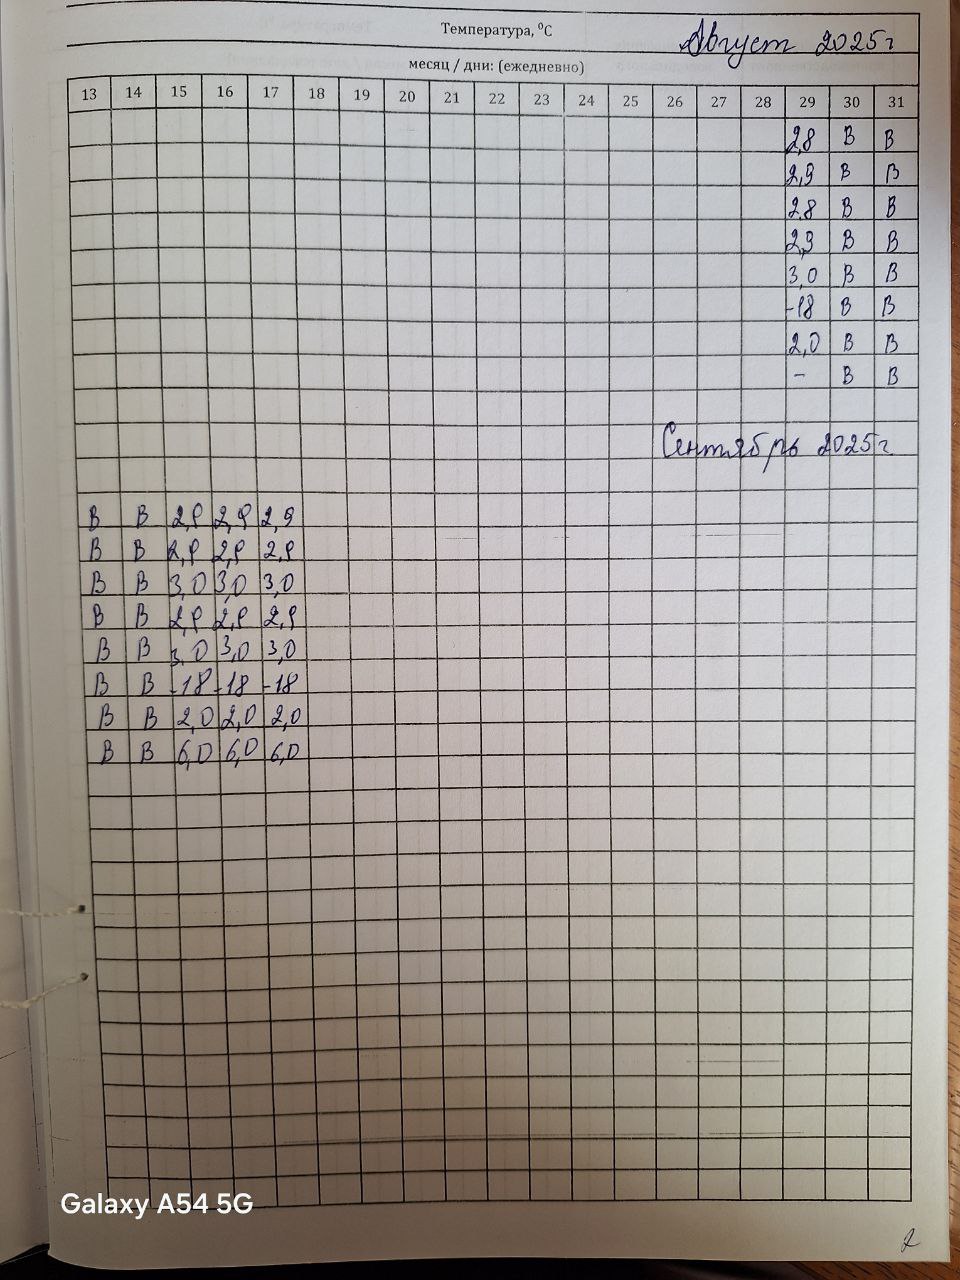 Температура, ⁰С
Август 2025г
месяц / дни: (ежедневно)
13 14 15 16 17 18 19 20 21 22 23 24 25 26 27 28 29 30 31
2,8 В В
2,9 В В
2,8 В В
2,9 В В
3,0 В В
-18 В В
2,0 В В
- В В
Сентябрь 2025г
В В 2,9 2,9 2,9
В В 2,9 2,9 2,9
В В 3,0 3,0 3,0
В В 2,9 2,9 2,9
В В 3,0 3,0 3,0
В В -18 -18 -18
В В 2,0 2,0 2,0
В В 6,0 6,0 6,0
Galaxy A54 5G
2